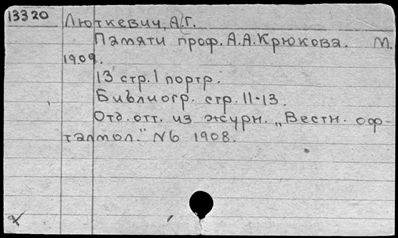 13320 Люткевич, А.Г.
Памяти проф. А.А.Крюкова. М.
1909.
13 стр. 1 портр.
Библиогр. стр. 11-13.
Отд. отт. из журн. „Вестн. оф-
талмол." N6 1908.